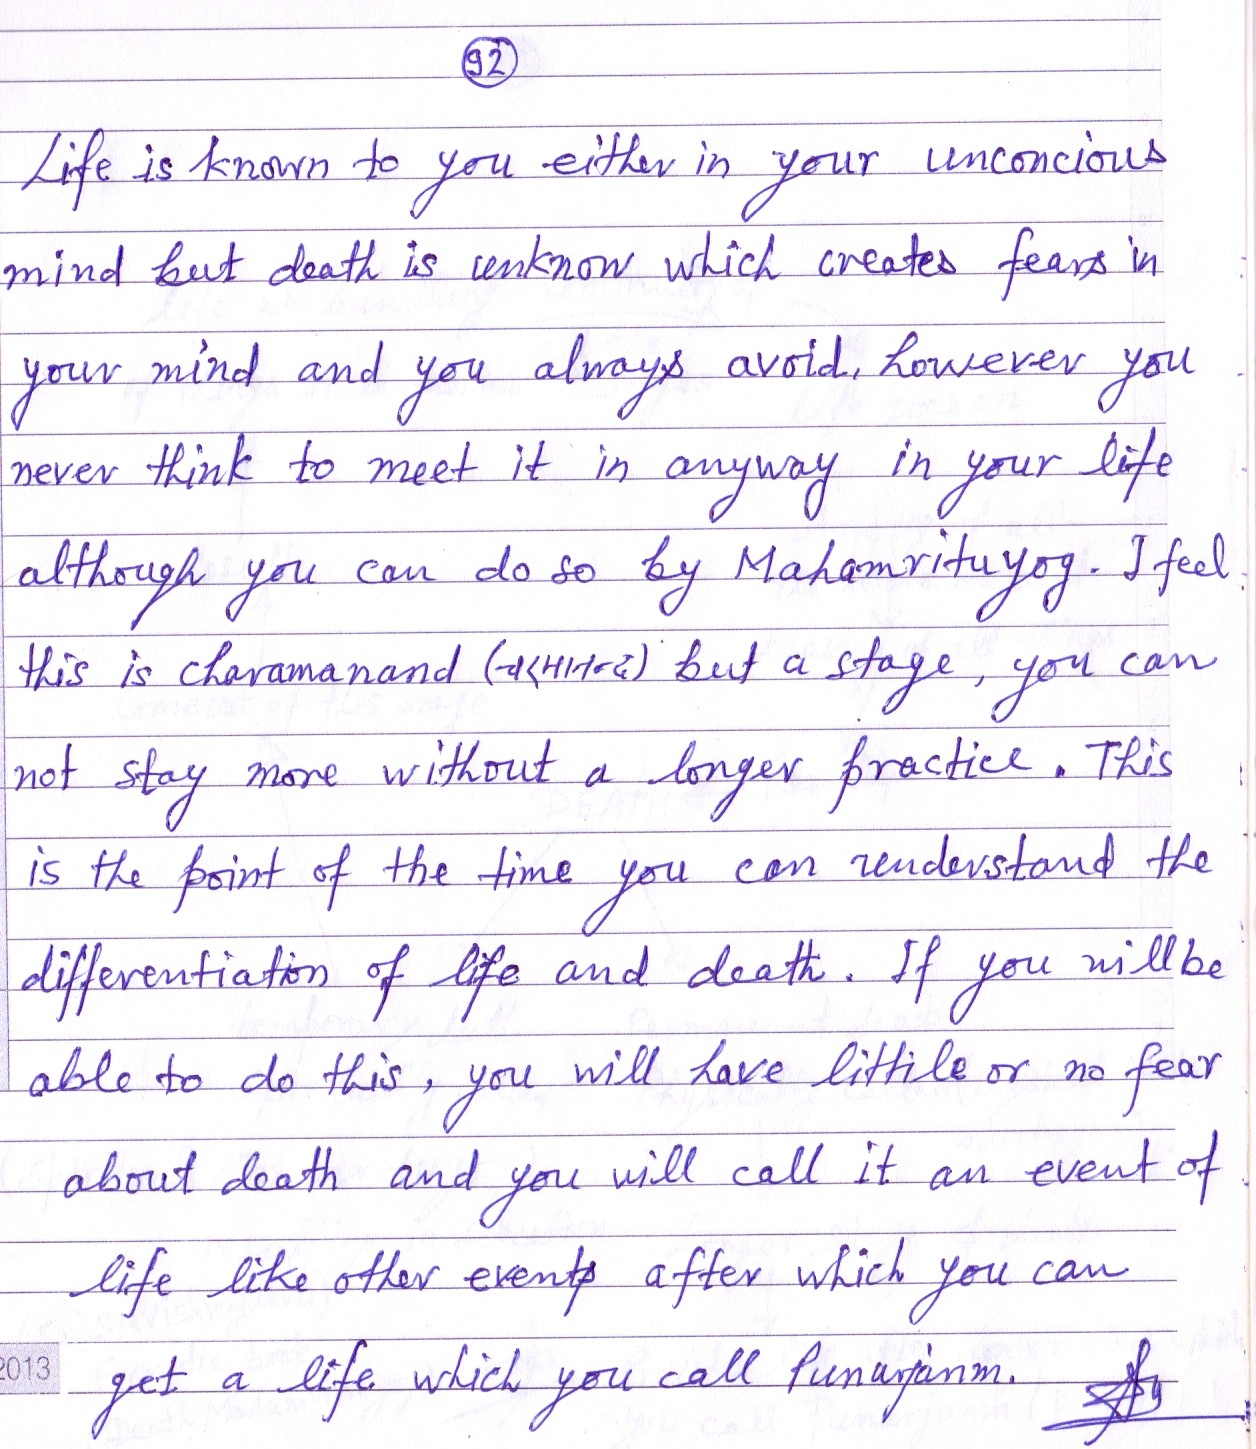 92
Life is known to you either in your unconcious
mind but death is unknow which creates fears in
your mind and you always avoid, however you
never think to meet it in anyway in your life
although you can do so by Mahamrituyog. I feel
this is charamanand (चरमानन्द) but a stage, you can
not stay more without a longer practice. This
is the point of the time you can understand the
differentiation of life and death. If you will be
able to do this, you will have littile or no fear
about death and you will call it an event of
life like other events after which you can
2013 get a life which you call Punarjanm.